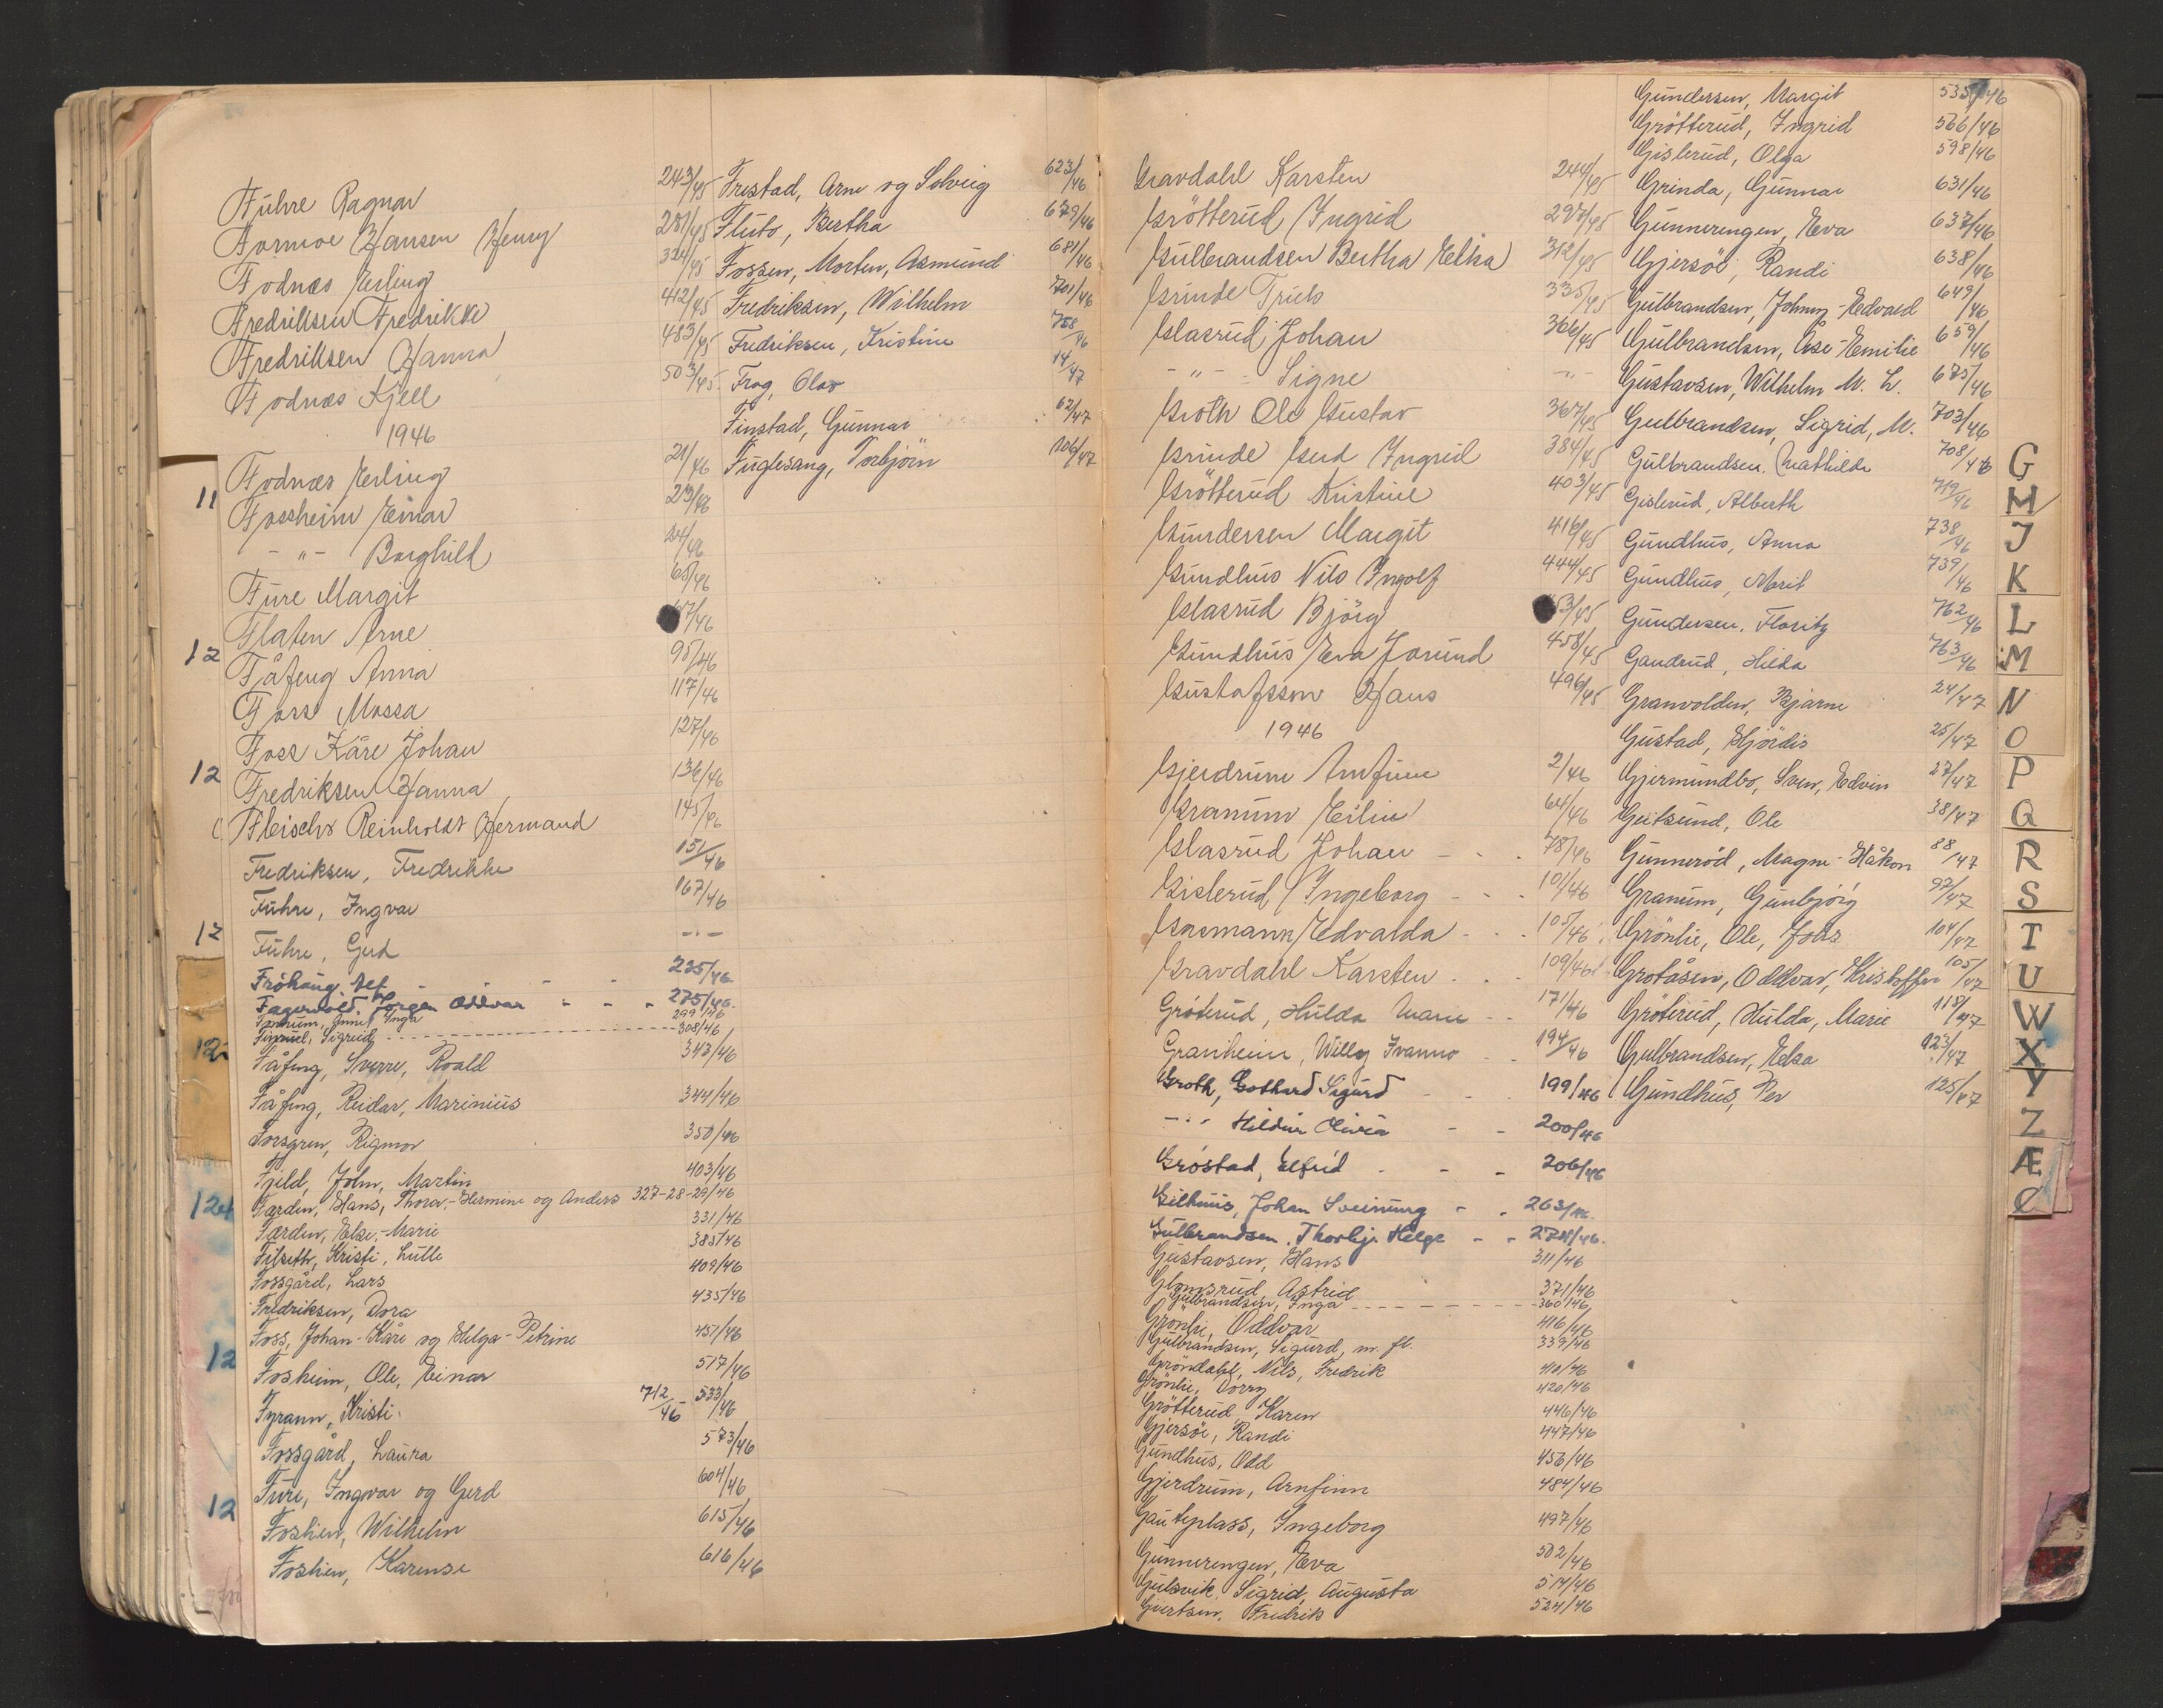 Fuhre Ragnar 243/45
Formoe Hansen Henry 281/45
Fodnæs Erling 324/45
Fredriksen Fredrikke 412/45
Fredriksen Hanna 483/45
Fodnæs Kjell 503/45
1946
Fodnæs Erling 21/46
Fossheim Einar 23/46
- " - Borghild 24/46
Fure Margit 65/46
Flaten Arne 67/46
Fåfeng Anna 95/46
Fors Mossa 117/46
Foss Kåre Johan 127/46
Fredriksen Hanna 136/46
Fleischr Reinholdt Hermand 145/46
Fredriksen, Fredrikke 151/46
Fuhre, Ingvar 167/46
Fuhre, Gerd - " -
Fröhaug, Alf 225/46
Fagervold, Jörgen Oddvar 275/46
299/46
Sigrid 308/46
Fåfeng, Sverre, Roald 343/46
Fåfeng, Reidar, Marinius 344/46
Forsgren, Rigmor 350/46
Fjeld, John, Martin 403/46
Færden, Hans, Thora,- Hermine og Anders 327-28-29/46
Færden, Else,-Marie 331/46
Filseth, Kristi, Lulle 385/46
Fossgård, Lars 409/46
Fredriksen, Dora 435/46
Foss, Johan-Kåre og Helga-Petrine 451/46
Fosheim, Ole, Einar 517/46
Fyrann, Kristi. 712/46 533/46
Fossgård, Laura 573/46
Fure, Ingvar og Gerd 604/46
Foshien, Wilhelm 615/46
Foshien, Karense 616/46
11
12
12
12
12
124
12
12
Frestad, Arne og Solveig 623/46
Fluto, Bertha 679/46
Fossen, Morten, Asmund 681/46
Fredriksen, Wilhelm 701/46
Fredriksen, Kristine 758/46
Frog, Olav 14/47
Finstad, Gunnar 62/47
Fuglesang, Torbjörn 106/47
Gravdahl Karsten 244/45
Grötterud Ingrid 297/45
Gulbrandsen Bertha Elka 312/45
Grinde Truls 335/45
Glasrud Johan 366/45
- " - Signe - " -
Groth Ole Gustav 367/45
Grinde Gerd Ingrid 384/45
Grötterud Kristine 403/45
Gundersen Margit 416/45
Gundhus Nils Ingolf 444/45
Glasrud Bjørg 53/45
Gundhus Eva Jorund 458/45
Gustafsson Hans 496/45
1946
Gjerdrum Arnfinn 2/46
Granum Eilin 64/46
Glasrud Johan 78/46
Gislerud Ingeborg 101/46
Edvalda 105/46
Gravdahl Karsten 109/46
Gröterud, Hulda Marie 171/46
Granheim, Willy Ivanno 194/46
Groth, Gothard Sigurd 199/46
- " - Hildur Olivia 200/46
Gróstad, Elfrid 206/46
Gilhuus, Johan Sveinung 263/46
Gulbrandsen, Thorbjr Helge 274/46
Gustavsen, Hans 311/46
Glomsrud, Astrid 371/46
Gulbrandsen, Inga 360/46
Grönlie, Oddvar 416/46
Gulbrandsen, Sigurd, m. fl. 339/46
Gröndahl, Nils, Fredrik 40/46
Grönlie, Dorry 420/46
Grötterud, Karen 446/46
Gjersöe, Randi 447/46
Gundhus, Odd 456/46
Gjerdrum, Arnfinn 484/46
Gauteplass, Ingeborg 497/46
Gunnerengen, Eva 502/46
Gulsvik, Sigrid, Augusta 514/46
Gjertsen, Fredrik 524/46
Gundersen, Margit 535/46
Grötterud, Ingrid 566/46
Gislerud, Olga 598/46
Grinda, Gunnar 631/46
Gunnerengen, Eva 637/46
Gjersöe, Randi 638/46
Gulbrandsen, Johnny-Edvard 649/46
Gulbrandsen, Åse-Emilie 659/46
Gustavsen, Wilhelm M. L. 675/46
Gulbrandsen, Sigrid, M. 703/46
Gulbrandsen, Mathilde 708/46
Gislerud, Alberth 719/46
Gundhus, Anna 738/46
Gundhus, Marit 739/46
Gundersen, Floritz 762/46
Gandrud, Hilda 763/46
Granvolden, Bjarne 24/47
Gustad, Hjördis 25/47
Gjermundbo, Sven, Edvin 27/47
Geitsund, Ole 38/47
Gunneröd, Magne-Håkon 88/47
Granum, Gunbjörg 97/47
Grönlie, Ole, Johs 104/47
Grotåsen, Oddvar, Kristoffer 105/47
Gröterud, Hulda, Marie 118/47
Gulbrandsen, Elsa 123/47
Gundhus, Per 125/47
G
H
J
K
L
M
N
O
P
Q
R
S
T
U
W
X
Y
Z
Æ
Ø